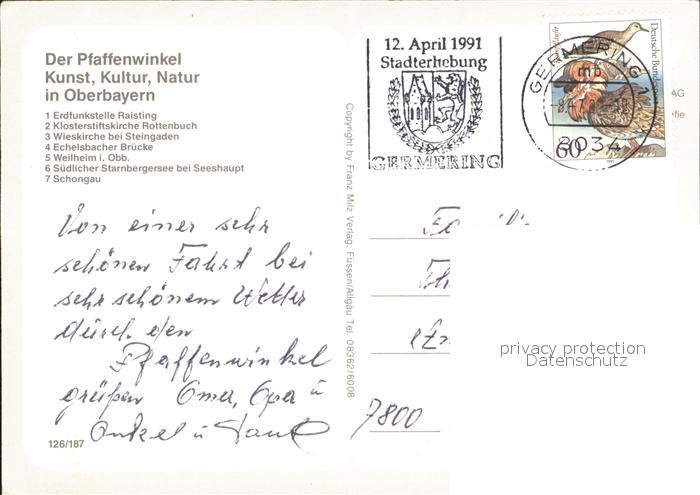 Der Pfaffenwinkel
Kunst, Kultur, Natur
in Oberbayern
1 Erdfunkstelle Raisting
2 Klosterstiftskirche Rottenbuch
3 Wieskirche bei Steingaden
4 Echelsbacher Brücke
5 Weilheim i. Obb.
6 Südlicher Starnbergersee bei Seeshaupt
7 Schongau
Von einer sehr
schönen Fahrt bei
sehr schönem Wetter
durch den
Pfaffenwinkel
grüßen Oma, Opa u
Onkel u Tante
126/187
Copyright by Franz Milz Verlag, Füssen/Allgäu Tel. 08362/6008
12. April 1991
Stadterhebung
GERMERING
GERMERING 1
mb
8034
60
Deutsche Bund
AG
fie
7800
privacy protection
Datenschutz